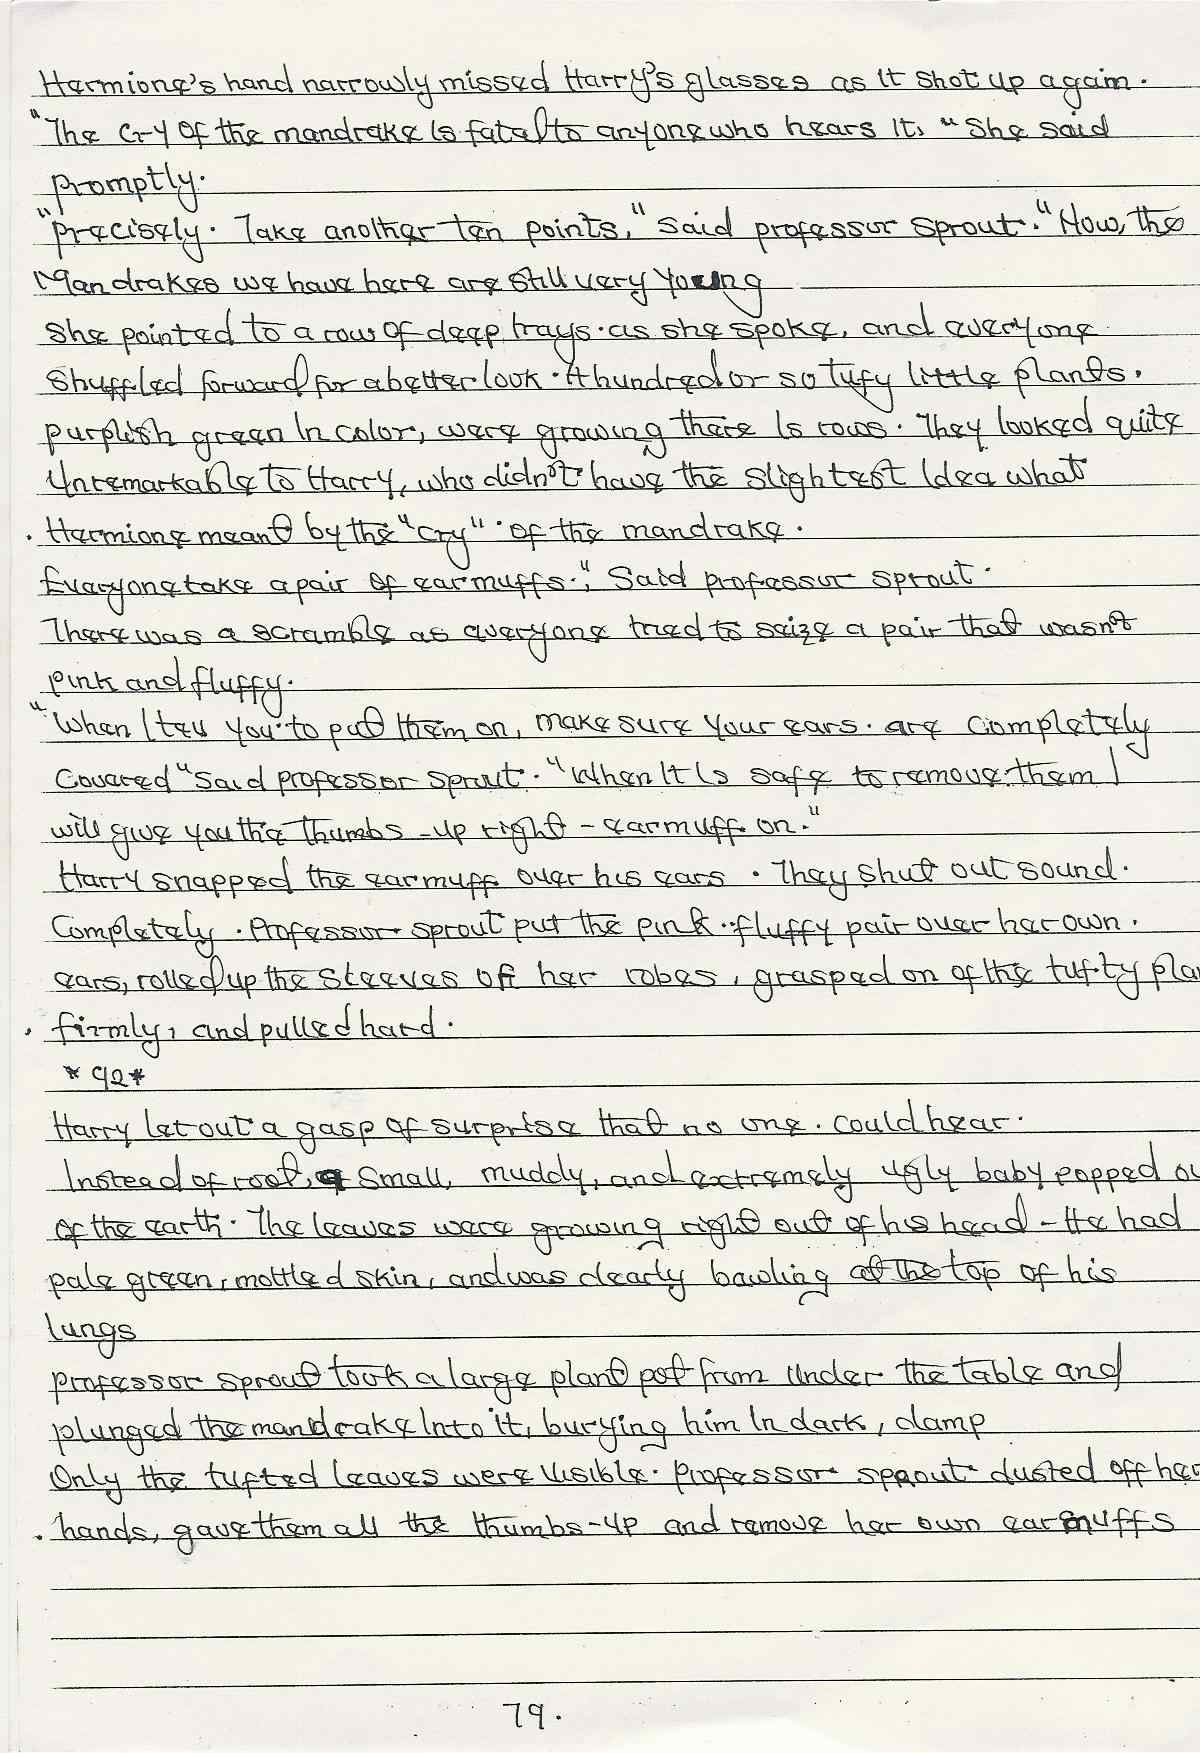 Hermione's hand narrowly missed Harry's glasses as it shot up again.
"The cry of the mandrake is fatal to anyone who hears it, "She said
promptly.
"precisely. Take another ten points," said professor sprout. "Now, the
Mandrakes we have here are still very young
She pointed to a row of deep trays. as she spoke, and everyone
shuffled forward for a better look. A hundred or so tufy little plants.
purplish green in color, were growing there is rows. They looked quite
Unremarkable to Harry, who didn't have the slightest Idea what
. Hermione meant by the "cry". of the mandrake.
Everyone take a pair of earmuffs.," Said professor sprout.
There was a scramble as everyone tried to seize a pair that wasn't
pink and fluffy.
"When I tell you. to put them on, make sure your ears. are completely
Covered "said professor sprout. "When it is safe to remove. them I
will give you the thumbs -up right - earmuff on."
Harry snapped the earmuff over his ears. They shut out sound.
Completely. Professor sprout put the pink..fluffy pair over her own.
ears, rolled up the sleeves off her robes, grasped on of the tufty plan
. firmly, and pulled hard.
*92*
Harry let out a gasp of surprise that no one. could hear.
Instead of root, a small, muddy, and extremely ugly baby popped ou
of the earth. The leaves were growing right out of his head - He had
pale green, mottled skin, and was clearly bawling at the top of his
lungs
professor sprout took a large plant pot from under the table and
plunged the mandrake Into it, burying him In dark, damp
Only the tufted leaves were visible. professor sprout dusted off her
. hands, gave them all the thumbs-up and remove her own earmuffs
79.